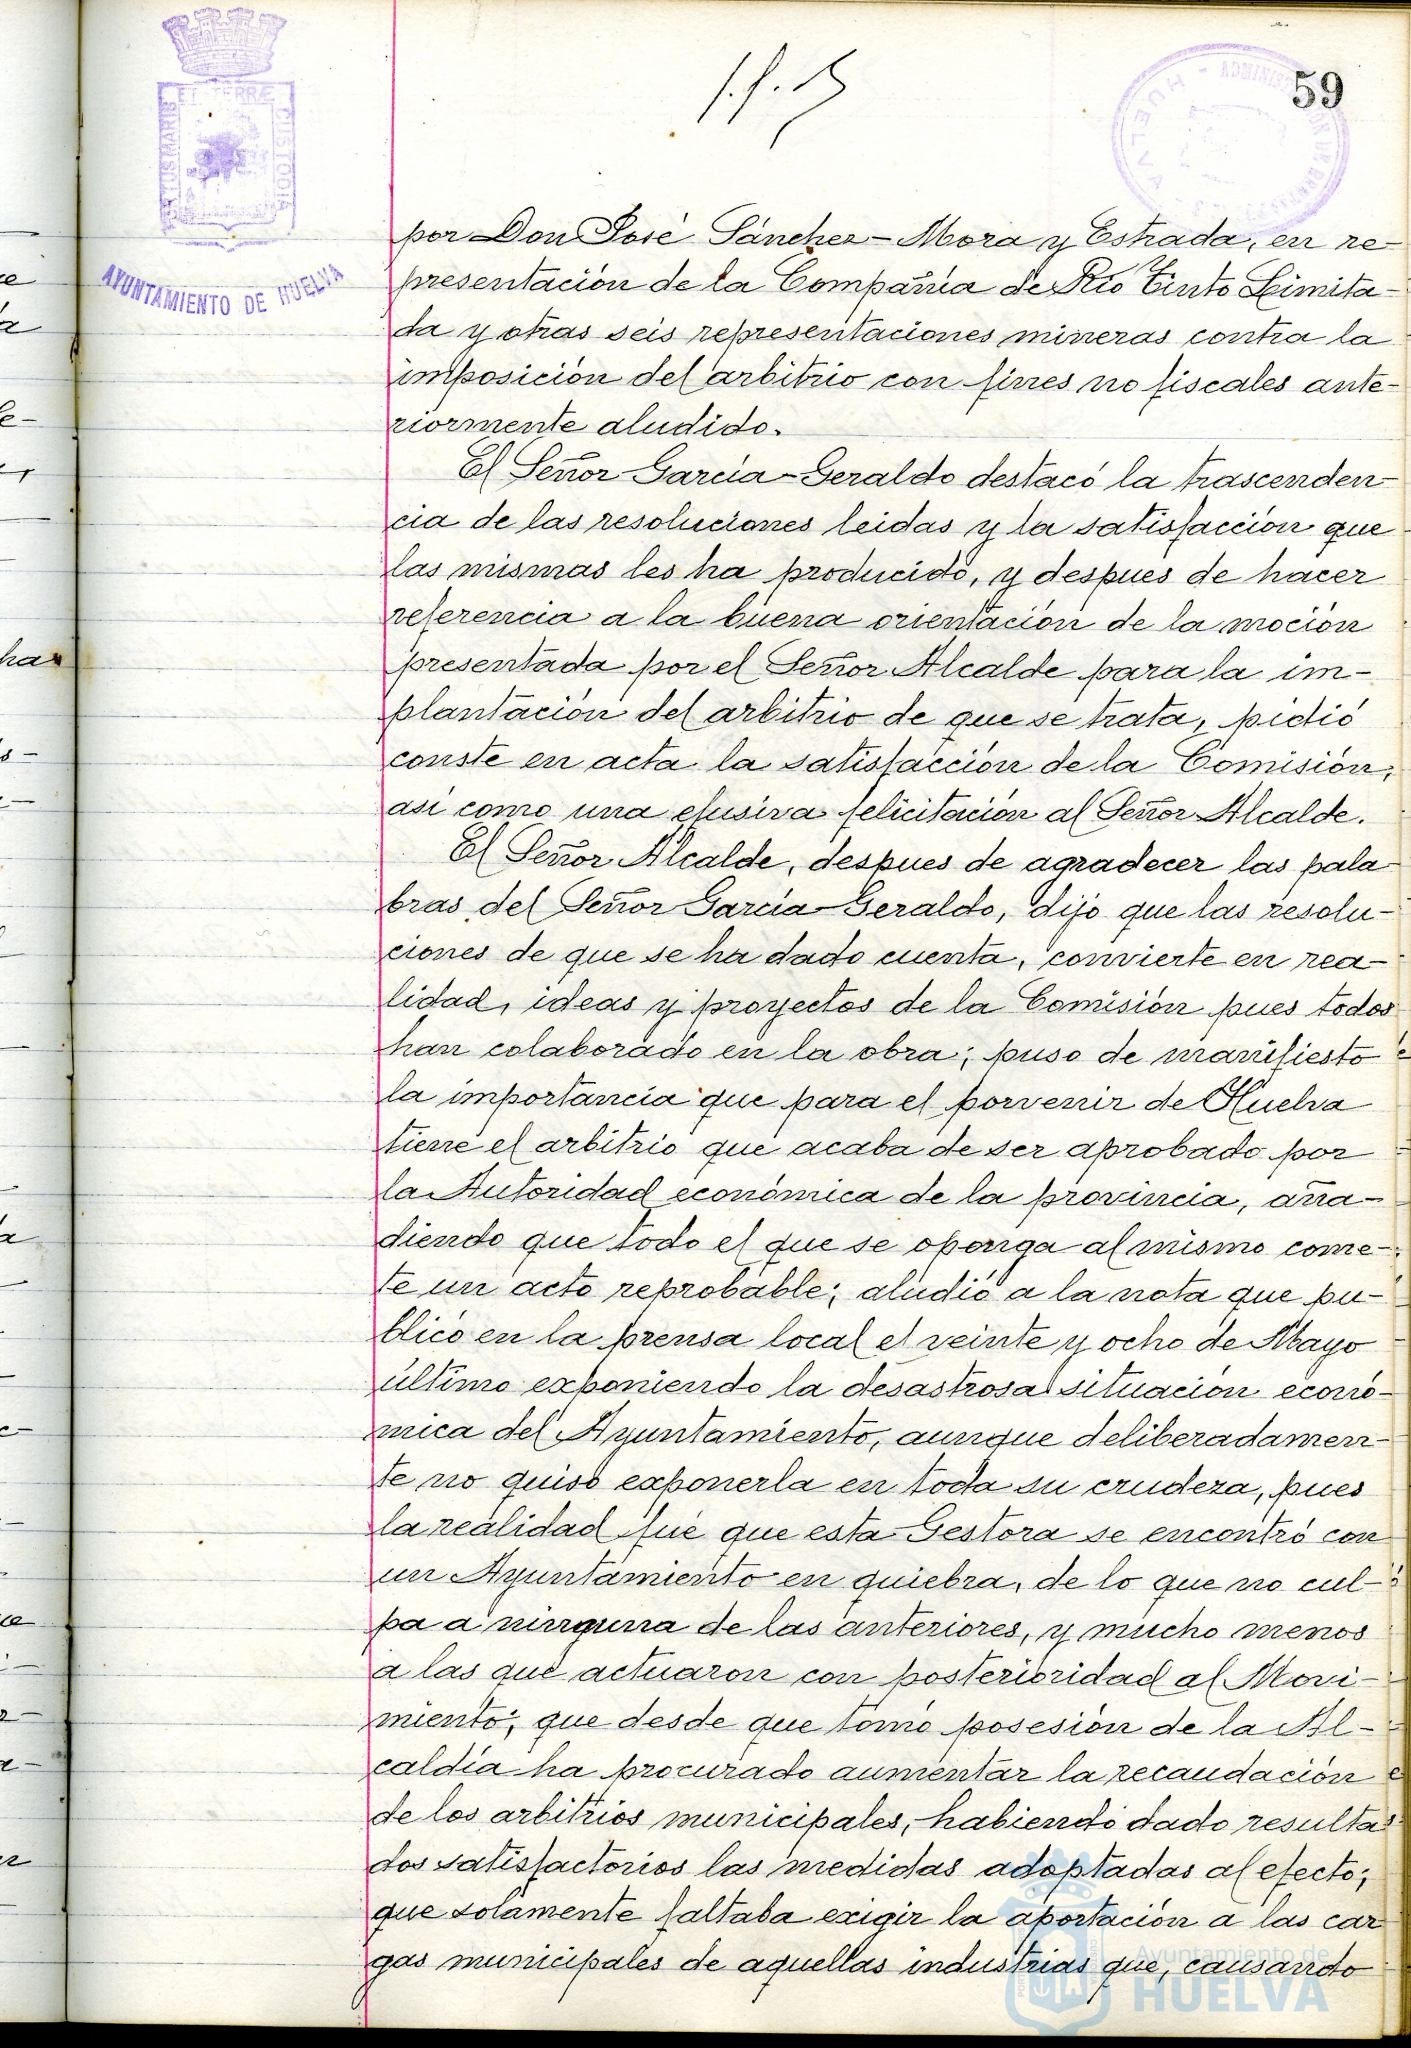 59
PORTUS MARIS
ET TERRÆ
CUSTODIA
AYUNTAMIENTO DE HUELVA
HUELVA
por Don José Sánchez-Mora y Estrada, en re-
presentación de la Compañía de Río Tinto Limita-
da y otras seis representaciones mineras contra la
imposición del arbitrio con fines no fiscales ante-
riormente aludido.
El Señor García-Geraldo destacó la trascenden-
cia de las resoluciones leidas y la satisfacción que
las mismas les ha producido, y despues de hacer
referencia a la buena orientación de la moción
presentada por el Señor Alcalde para la im-
plantación del arbitrio de que se trata, pidió
conste en acta la satisfacción de la Comisión,
asi como una efusiva felicitación al Señor Alcalde.
El Señor Alcalde, despues de agradecer las pala-
bras del Señor García-Geraldo, dijo que las resolu-
ciones de que se ha dado cuenta, convierte en rea-
lidad, ideas y proyectos de la Comisión pues todos
han colaborado en la obra; puso de manifiesto
la importancia que para el porvenir de Huelva
tiene el arbitrio que acaba de ser aprobado por
la Autoridad económica de la provincia, aña-
diendo que todo el que se oponga al mismo come-
te un acto reprobable; aludió a la nota que pu-
blicó en la prensa local el veinte y ocho de Mayo
último exponiendo la desastrosa situación econó-
mica del Ayuntamiento, aunque deliberadamen-
te no quiso exponerla en toda su crudeza, pues
la realidad fué que esta Gestora se encontró con
un Ayuntamiento en quiebra, de lo que no cul-
pa a ninguna de las anteriores, y mucho menos
a las que actuaron con posterioridad al Movi-
miento; que desde que tomó posesión de la Al-
caldía ha procurado aumentar la recaudación
de los arbitrios municipales, habiendo dado resulta-
dos satisfactorios las medidas adoptadas al efecto;
que solamente faltaba exigir la aportación a las car
gas municipales de aquellas industrias que, causando
Ayuntamiento de
HUELVA